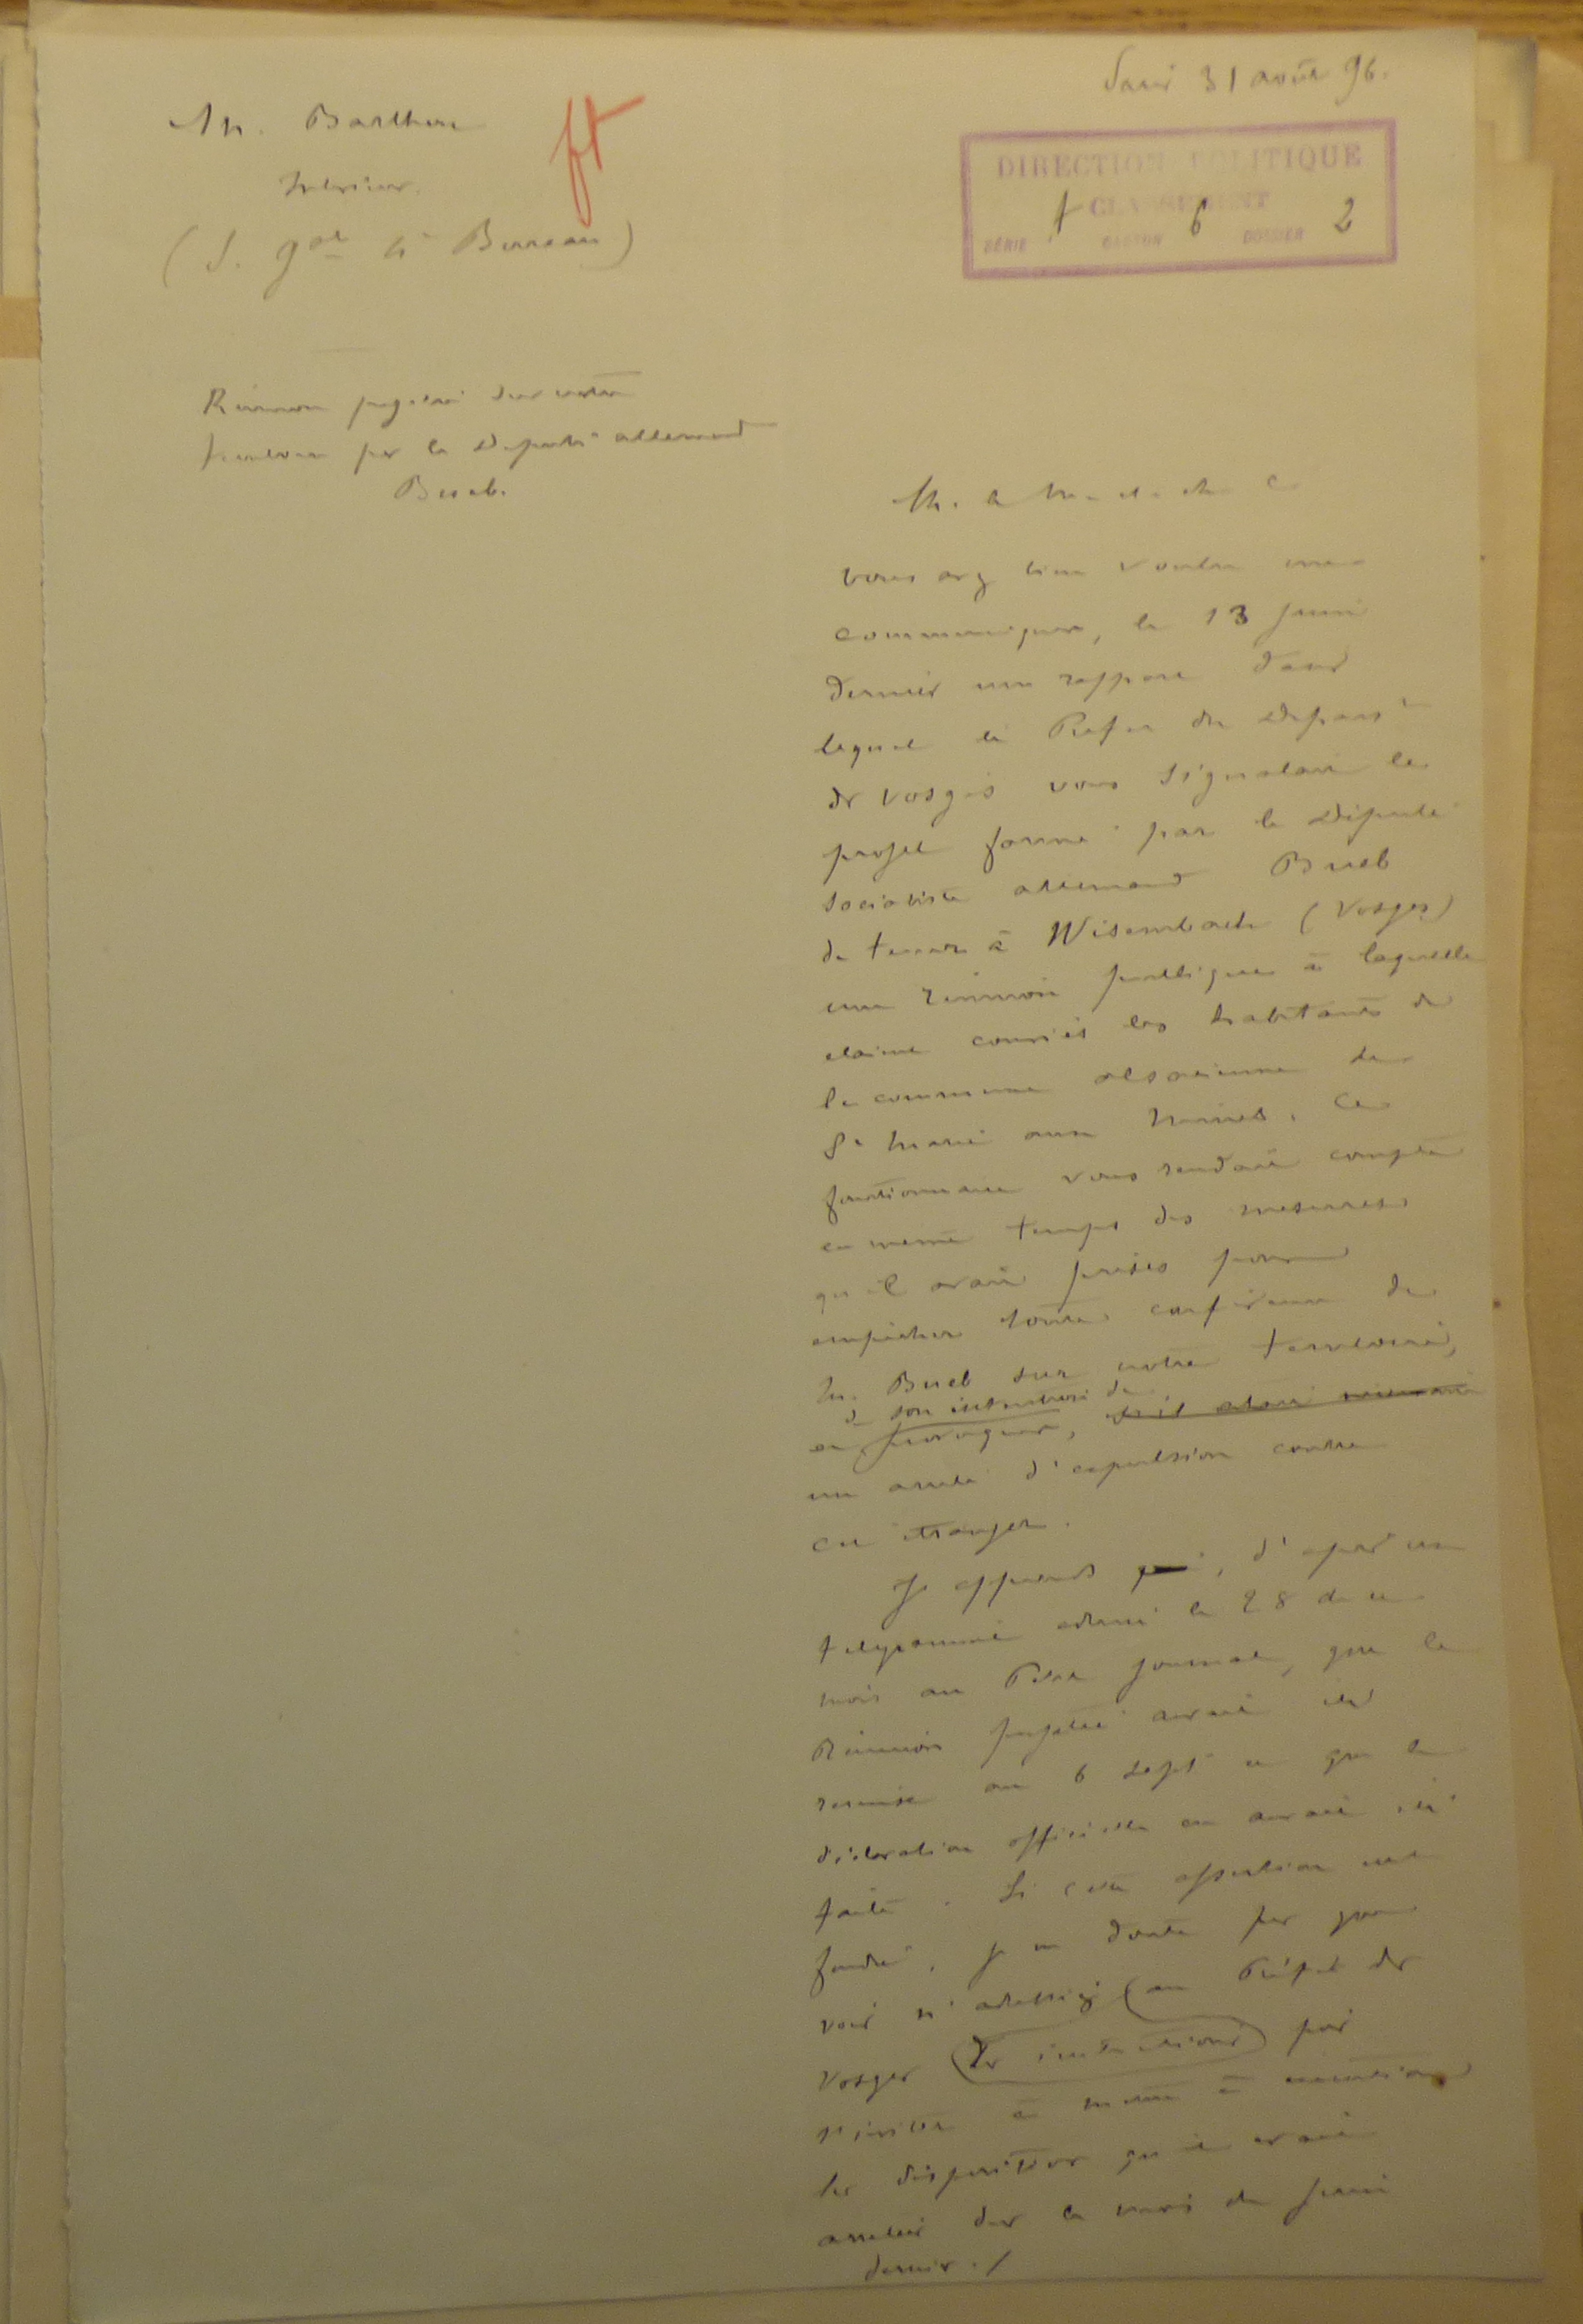 Paris 31 août 96.
M. Barthou
Intérieur.
(S. gale 4e Bureau)
ft
DIRECTION POLITIQUE
CLASSEMENT
SÉRIE A CARTON 6 DOSSIER 2
Réunion projetée sur notre
territoire par le Député allemand
Bueb.
M. le M. et ch. C
vous avez bien voulu me
communiquer, le 13 juin
dernier un rapport dans
lequel le Préfet du Dépant
des Vosges vous signalait le
projet formé par le Député
socialiste allemand Bueb
de tenir à Wisembach (Vosges)
une réunion publique à laquelle
étaient conviés les habitants de
la commune alsacienne de
Ste Marie aux Mines. Ce
fonctionnaire vous rendait compte
en même temps des mesures
qu'il avait prises pour
empêcher toute conférence de
M. Bueb sur notre territoire,
et son intention de
provoquer, s'il était nécessaire
un arrêté d'expulsion contre
cet étranger.
Je apprends que, d'après un
télégramme adressé le 28 de ce
mois au Petit Journal, que la
Réunion projetée aurait été
remise au 6 Sept et que la
déclaration officielle en aurait été
faite. Si cette assertion est
fondée, je ne doute pas que
vous n'adressiez au Préfet des
Vosges des instructions pour
l'inviter à mettre à exécution
les dispositions qu'il avait
arrêtées dans le mois de juin
dernier./